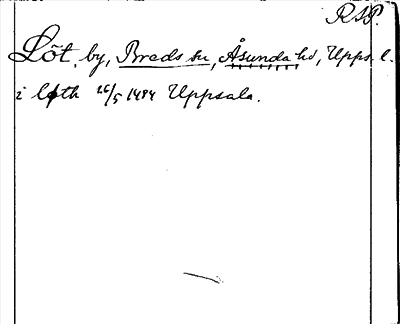 RSP.
Löt, by, Breds sn, Åsunda hd, Upps. l.
i løth 26/5 1484 Uppsala.